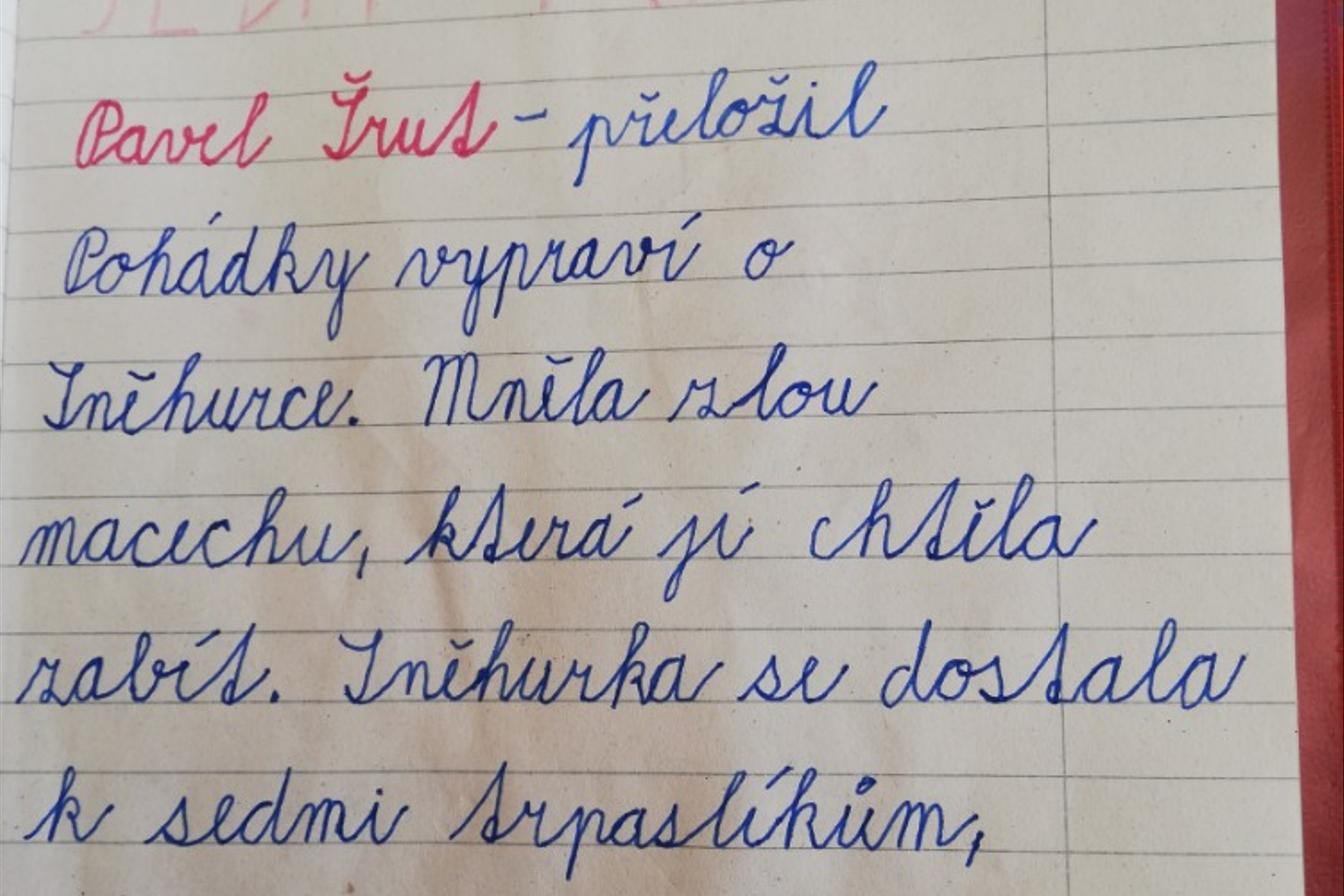 Pavel Šrut - přeložil
Pohádky vypraví o
Sněhurce. Mněla zlou
macechu, která jí chtěla
zabít. Sněhurka se dostala
k sedmi trpaslíkům,